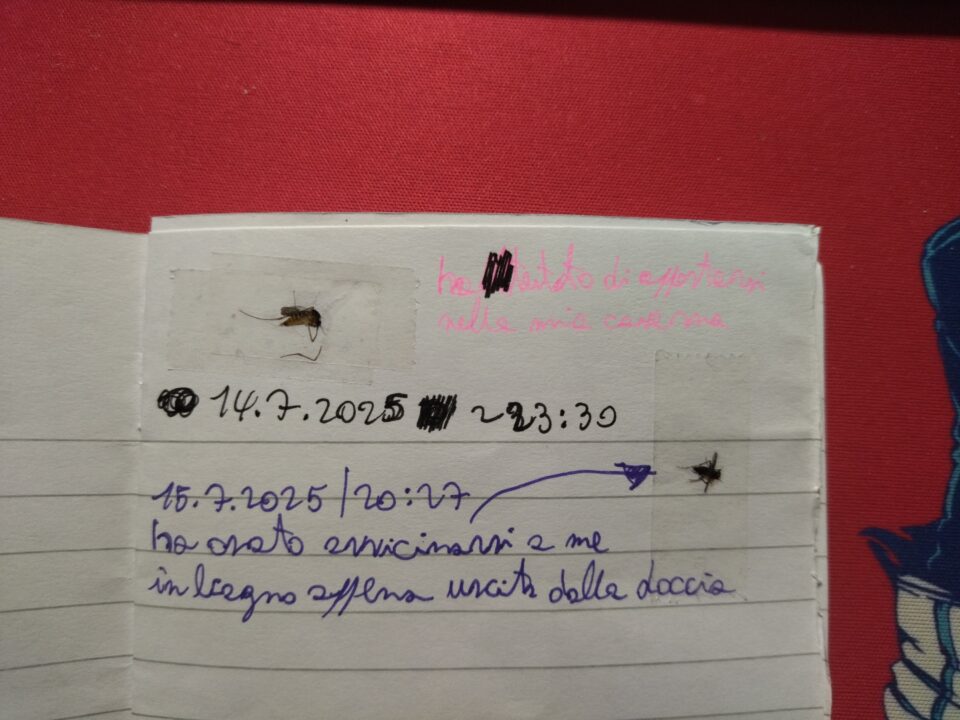 ha tentato di appostarsi
nella mia caserma
14.7.2025 ~23:30
15.7.2025 | 20:27
ha osato avvicinarsi a me
in bagno appena uscita dalla doccia